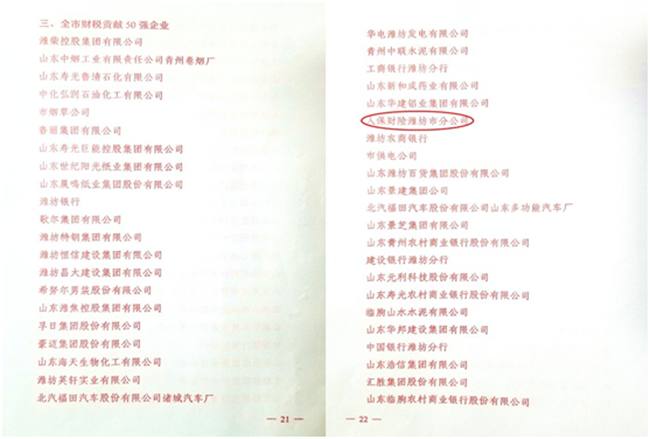 三、全市财税贡献50强企业
潍柴控股集团有限公司
山东中烟工业有限责任公司青州卷烟厂
山东寿光鲁清石化有限公司
中化弘润石油化工有限公司
市烟草公司
鲁丽集团有限公司
山东寿光巨能控股集团有限公司
山东世纪阳光纸业集团有限公司
山东晨鸣纸业集团股份有限公司
潍坊银行
歌尔集团有限公司
潍坊特钢集团有限公司
潍坊恒信建设集团有限公司
潍坊昌大建设集团有限公司
希努尔男装股份有限公司
山东潍焦控股集团有限公司
孚日集团股份有限公司
豪迈集团股份有限公司
山东海天生物化工有限公司
潍坊英轩实业有限公司
北汽福田汽车股份有限公司诸城汽车厂
— 21 —
华电潍坊发电有限公司
青州中联水泥有限公司
工商银行潍坊分行
山东新和成药业有限公司
山东华建铝业集团有限公司
人保财险潍坊市分公司
潍坊农商银行
市供电公司
山东潍坊百货集团股份有限公司
山东景建集团公司
北汽福田汽车股份有限公司山东多功能汽车厂
山东景芝集团有限公司
山东青州农村商业银行股份有限公司
建设银行潍坊分行
山东元利科技股份有限公司
山东寿光农村商业银行股份有限公司
临朐山水水泥有限公司
山东华邦建设集团有限公司
中国银行潍坊分行
山东浩信集团有限公司
汇胜集团股份有限公司
山东临朐农村商业银行股份有限公司
— 22 —